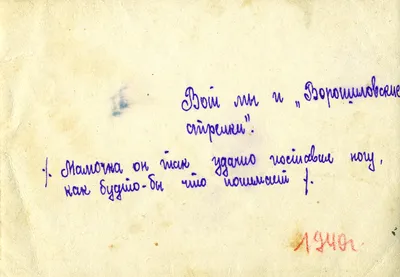 Вот мы и „Ворошиловские
стрелки".
/. Мамочка он так удачно поставил ногу,
как будто-бы что понимает /.
1940г.